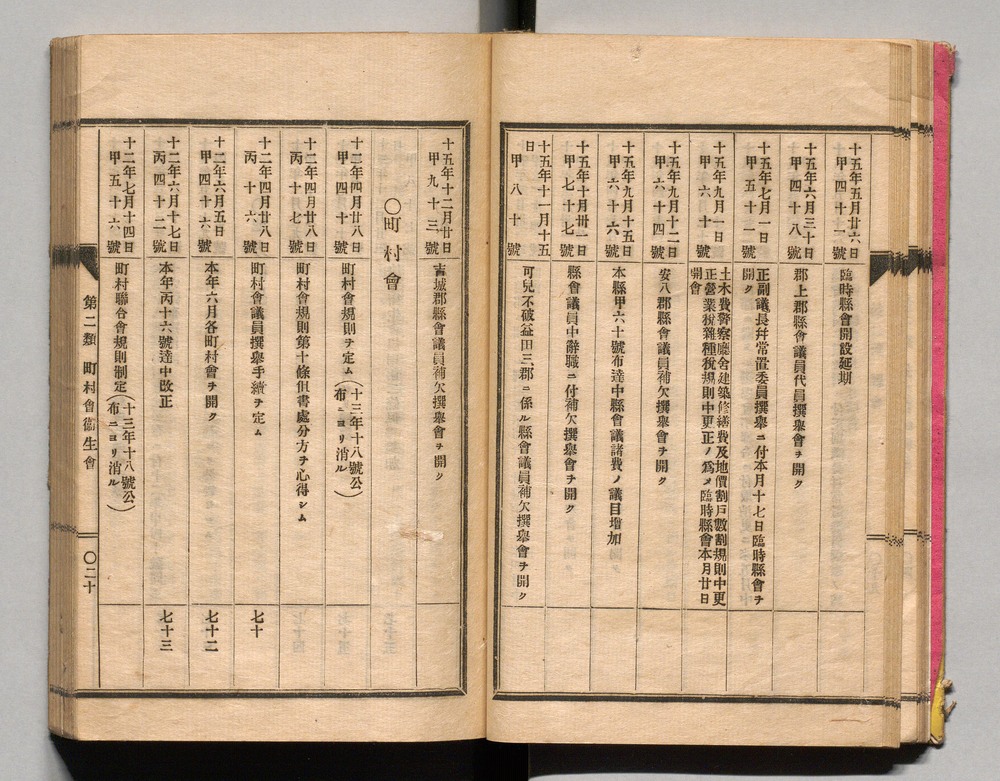 十五年五月廿六日
甲四十一號
臨時縣會開設延期
十五年六月三十日
甲四十八號
郡上郡縣會議員代員撰擧會ヲ開ク
十五年七月一日
甲五十一號
正副議長幷常置委員撰擧ニ付本月十七日臨時縣會ヲ
開ク
十五年九月一日
甲六十號
土木費警察廳舍建築修繕費及地價割戸數割規則中更
正營業稅雜種稅規則中更正ノ爲メ臨時縣會本月廿日
開會
十五年九月十二日
甲六十四號
安八郡縣會議員補欠撰擧會ヲ開ク
十五年九月十五日
甲六十六號
本縣甲六十號布達中縣會議諸費ノ議目增加
十五年十月卅一日
甲七十七號
縣會議員中辭職ニ付補欠撰擧會ヲ開ク
十五年十一月十五
日
甲八十號
可兒不破益田三郡ニ係ル縣會議員補欠撰擧會ヲ開ク
十五年十二月廿日
甲九十三號
吉城郡縣會議員補欠撰擧會ヲ開ク
〇町村會
十二年四月廿八日
甲四十一號
町村會規則ヲ定ム(十三年十八號公
布ニヨリ消ル)
十二年四月廿八日
丙十七號
町村會規則第十條但書處分方ヲ心得シム
十二年四月廿八日
丙十六號
町村會議員撰擧手續ヲ定ム
七十
十二年六月五日
甲四十六號
本年六月各町村會ヲ開ク
七十二
十二年六月十七日
丙四十二號
本年丙十六號達中改正
七十三
十二年七月十四日
甲五十六號
町村聯合會規則制定(十三年十八號公
布ニヨリ消ル)
第二類 町村會衞生會
〇二十